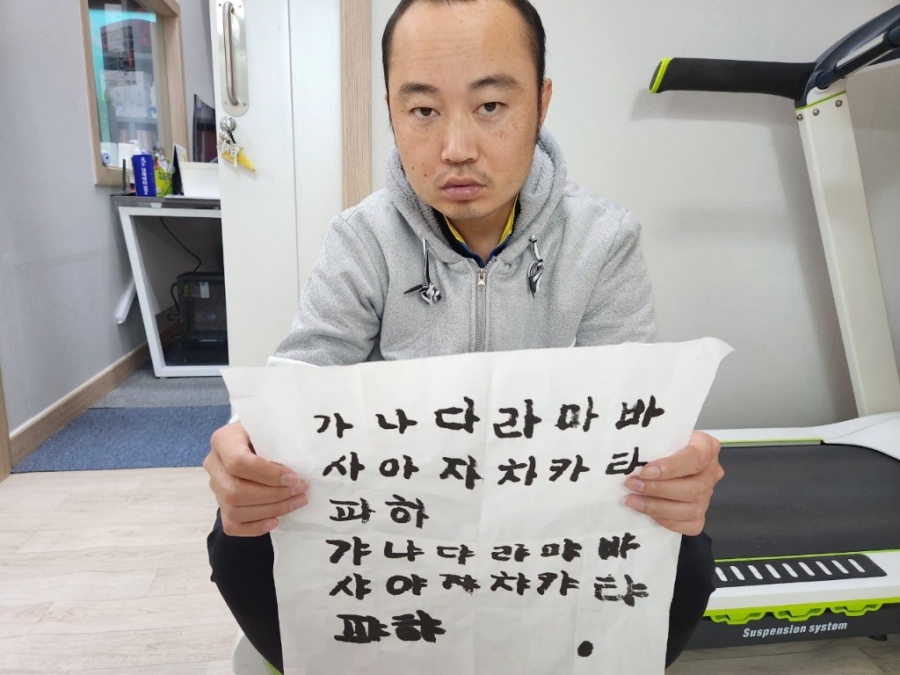 가 나 다 라 마 바
사 아 자 차 카 타
파 하
갸 냐 댜 랴 먀 뱌
샤 야 쟈 챠 캬 탸
퍄 햐
.
Suspension system